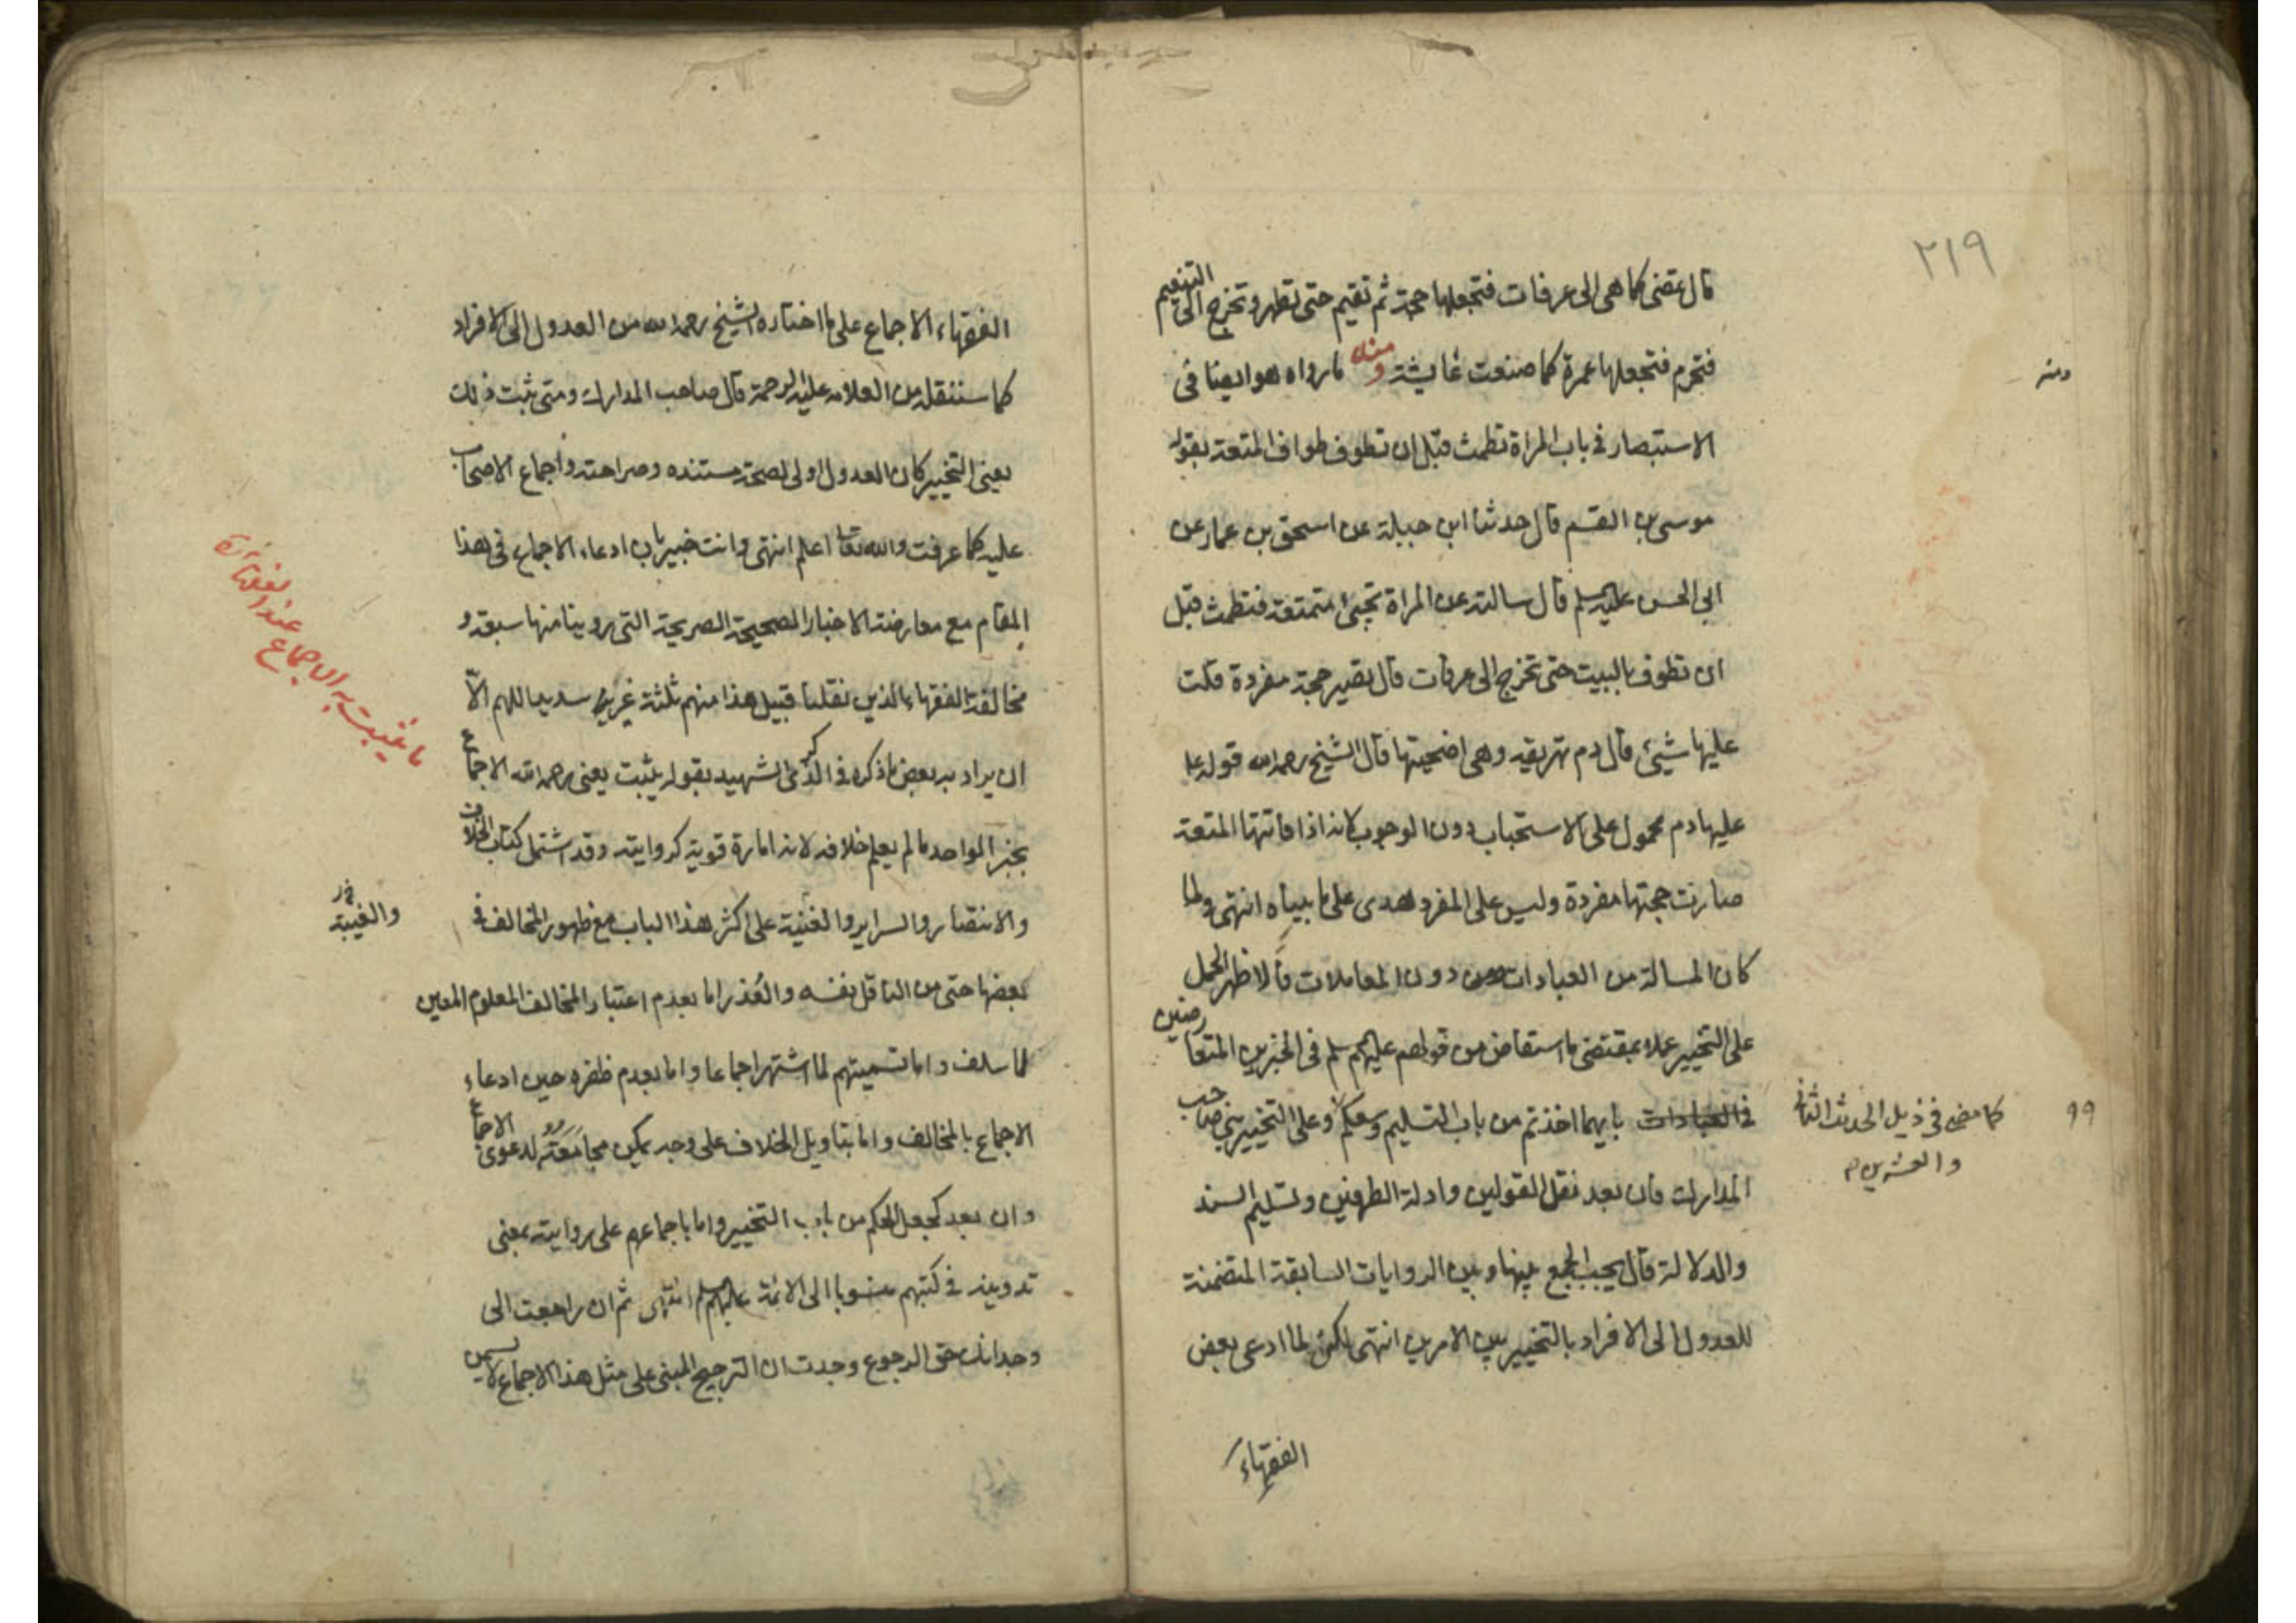 ٢١٩
قال تمضى كما هى الى عرفات فتجعلها حجة ثم تقيم حتى تطهر وتخرج الى التنعيم
فتحرم فتجعلها عمرة كما صنعت عايشة ومنه ما رواه هو ايضا فى
ومنه
الاستبصار فى باب المراة تطمث قبل ان تطوف طواف المتعة بقوله
موسى بن القسم قال حدثنا ابن جبيلة عن اسحق بن عمار عن
ابى الحسن عليه السلم قال سالته عن المراة تجيئ متمتعة فتطمث قبل
ان تطوف بالبيت حتى تخرج الى عرفات قال تصير حجة مفردة قلت
عليها شيئ قال دم تهريقه وهى اضحيتها قال الشيخ رحمه الله قوله ع
عليها دم محمول على الاستحباب دون الوجوب لانه اذا فاتتها المتعة
صارت حجتها مفردة وليس على المفرد هدى على ما بيناه انتهى ولما
كان المسالة من العبادات دون المعاملات فالاظهر الحمل
على التخيير عملا بمقتضى ما استفاض من قولهم عليهم السلم فى الخبرين المتعارضين
فى العبادات بايهما اخذتم من باب التسليم وسعكم وعلى التخيير بنى صاحب
كما مضى فى ذيل الحديث الثانى
والعشرين م
٩٩
المدارك فان بعد نقل القولين وادلة الطرفين وتسليم السند
والدلالة قال يجب الجمع بينها وبين الروايات السابقة المتضمنة
للعدول الى الافراد بالتخيير بين الامرين انتهى لكن لما ادعى بعض
الفقهاء
الفقهاء الاجماع على ما اختاره الشيخ رحمه الله من العدول الى الافراد
كما سننقله من العلامه عليه الرحمة قال صاحب المدارك ومتى ثبت ذلك
يعنى التخيير كان العدول اولى لصحة مستنده وصراحته واجماع الاصحاب
عليه كما عرفت والله تعالى اعلم انتهى وانت خبير بان ادعاء الاجماع فى هذا
المقام مع معارضة الاخبار الصحيحة الصريحة التى روينا منها سبقه و
مخالفة الفقهاء الذين نقلنا قبيل هذا منهم ثلثة غريب سديد اللهم الّا
ان يراد به بعض ما ذكره فى الذكرى الشهيد بقوله يثبت يعنى رحمه الله الاجماع
ما يثبت به الاجماع عند الفقهاء
بخبر الواحد ما لم يعلم خلافه لانه امارة قوية كروايته وقد اشتمل كتاب الخلاف
والانتصار والسراير والغنية على اكثر هذا الباب مع ظهور المخالف فى
والغيبة
بعضها حتى من الناقل نفسه والعذر اما بعدم اعتبار المخالف المعلوم المعين
كما سلف واما تسميتهم لما اشتهر اجماعا واما بعدم ظفره حين ادعاء
الاجماع بالمخالف واما بتاويل الخلاف على وجه يمكن مجامعته لدعوى الاجماع
وان بعد كجعل الحكم من باب التخيير واما باجماعهم على روايته بمعنى
تدوينه فى كتبهم منسوبا الى الائمة عليهم السلم انتهى ثم ان راجعت الى
وجدانك حق الرجوع وجدت ان الترجيح المبنى على مثل هذا الاجماع لا يسمن